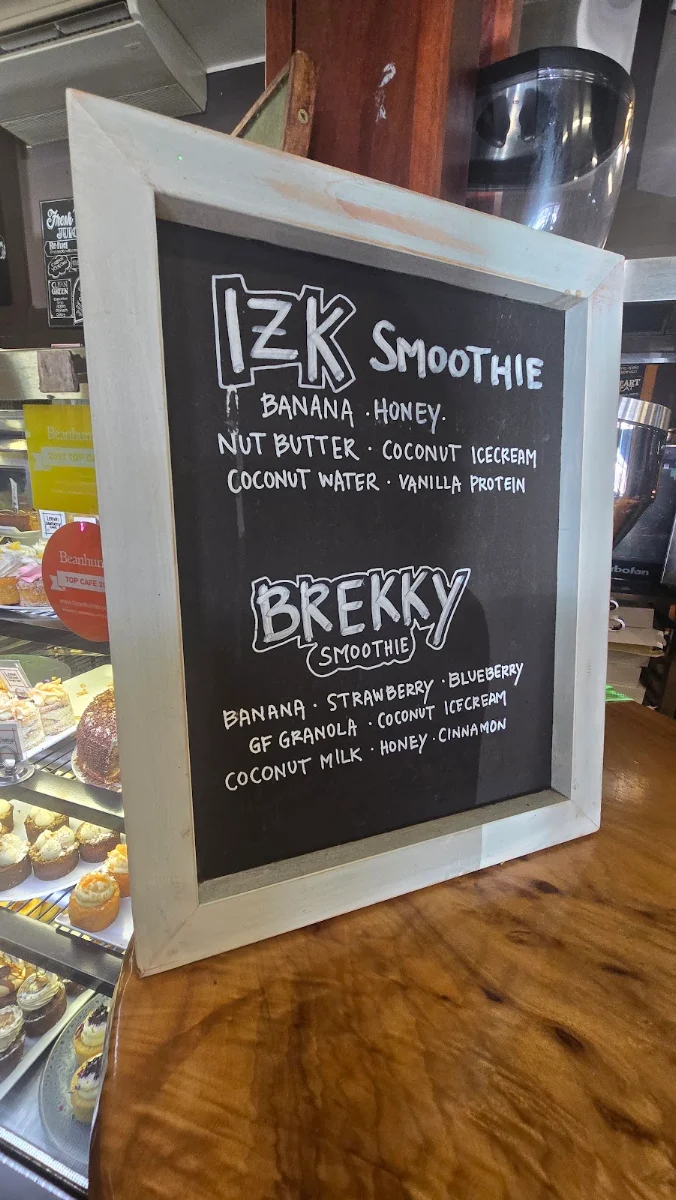 IZK SMOOTHIE
BANANA · HONEY.
NUT BUTTER · COCONUT ICECREAM
COCONUT WATER · VANILLA PROTEIN
BREKKY
SMOOTHIE
BANANA · STRAWBERRY · BLUEBERRY
GF GRANOLA · COCONUT ICECREAM
COCONUT MILK · HONEY · CINNAMON
Fresh
Beanhun
Beanhun
TOP CAFE